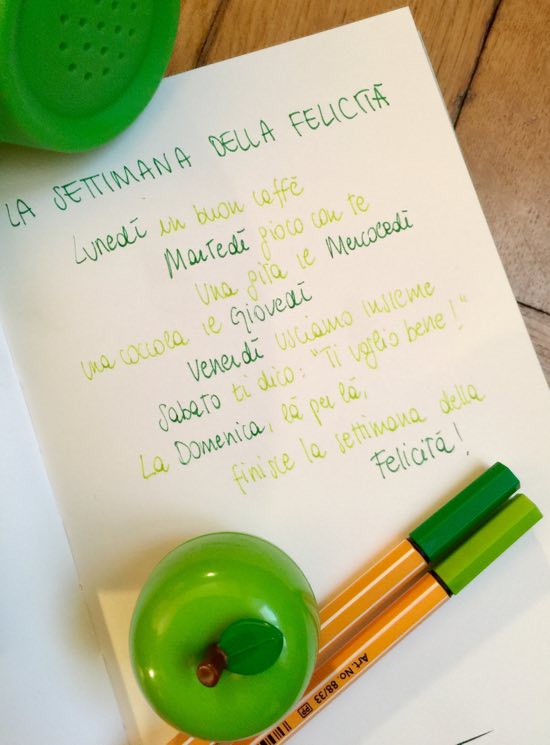 LA SETTIMANA DELLA FELICITÀ
Lunedì un buon caffè
Martedì gioco con te
Una gita il Mercoledì
una coccola il Giovedì
Venerdì usciamo insieme
Sabato ti dico: "Ti voglio bene!"
La Domenica, là per là,
finisce la settimana della
Felicità!
Art. No. 88/33